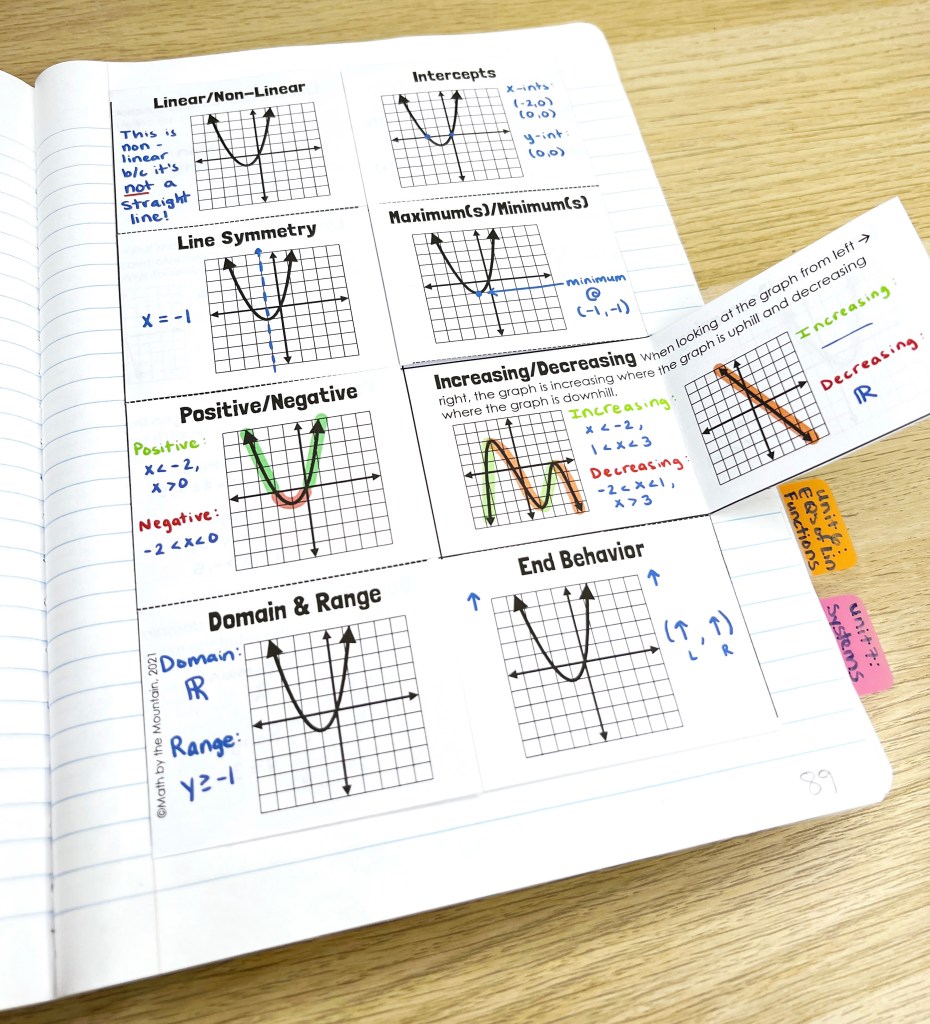 Linear/Non-Linear
This is
non-
linear
b/c it's
not a
straight
line!
Intercepts
x-ints:
(-2,0)
(0,0)
y-int:
(0,0)
Line Symmetry
x = -1
Maximum(s)/Minimum(s)
minimum
@
(-1,-1)
Positive/Negative
Positive:
x<-2,
x>0
Negative:
-2<x<0
Increasing/Decreasing
When looking at the graph from left →
right, the graph is increasing where the graph is uphill and decreasing
where the graph is downhill.
Increasing:
x<-2,
1<x<3
Decreasing:
-2<x<1,
x>3
Increasing:
Decreasing:
ℝ
Domain & Range
Domain:
ℝ
Range:
y≥-1
End Behavior
↑ ↑
(↑,↑)
L R
©Math by the Mountain, 2021
unit 6:
EQ's of Lin
Functions
unit 7:
Systems
89